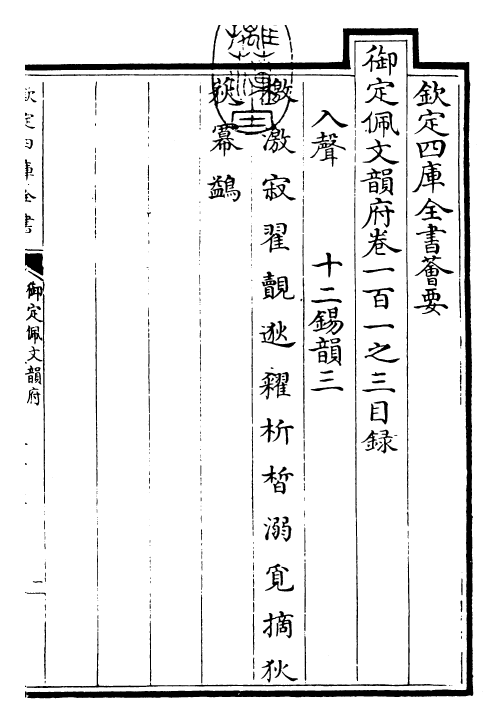 欽定四庫全書薈要
御定佩文韻府卷一百一之三目録
入聲　十二錫韻三
檄激寂翟覿逖糴析晳溺覓摘狄
荻冪鷁
欽定四庫全書
御定佩文韻府